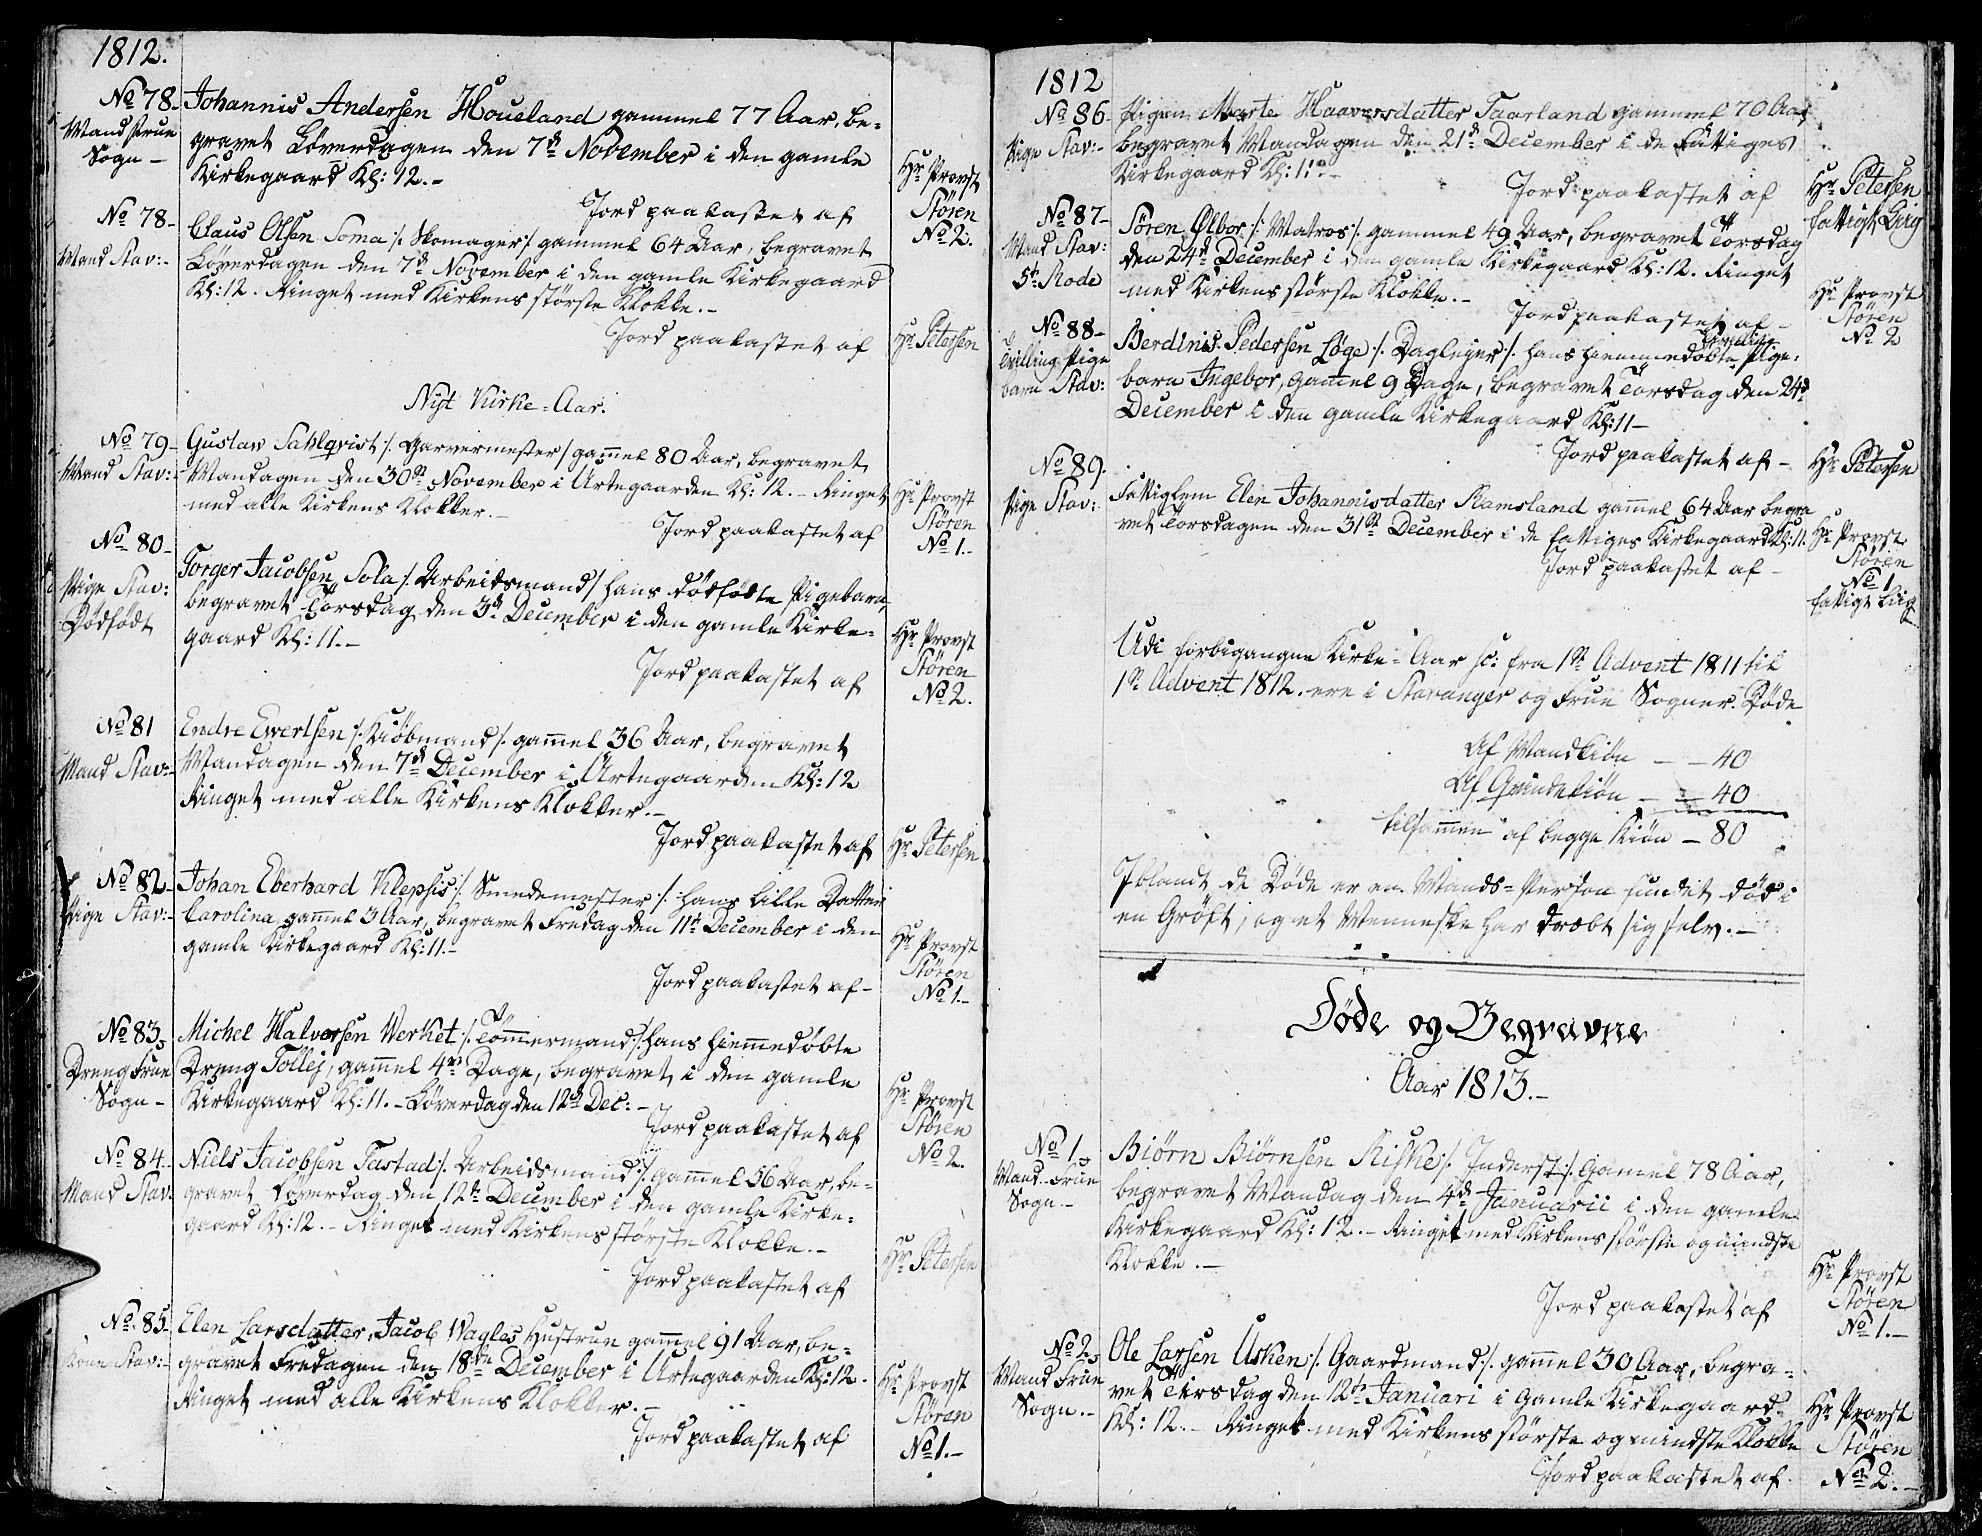 1812.
No 78-
Mand Frue
Sogn -
Johannis Andersen Houeland gammel 77 Aar, be-
gravet Løverdagen den 7de November i den gamle
Kirkegaard Kl: 12.-
Jord paakastet af
Hr Provst
Støren
No 2.
No 78-
Mand Stav:-
Claus Olsen Soma /: Skomager :/ gammel 64 Aar, begravet
Løverdagen den 7de November i den gamle Kirkegaard
Kl: 12. Ringet med Kirkens største Klokke.-
Jord paakastet af
Hr Petersen
Nyt Kirke-Aar.
No 79-
Mand Stav:-
Gustav Sahlqvist /: Garvermester / gammel 80 Aar, begravet
Mandagen den 30te November i Urtegaarden Kl: 12.- Ringet
med alle Kirkens Klokker.-
Jord paakastet af
Hr Provst
Støren
No 1.-
No 80-
Pige Stav:
Dødfødt
Torger Jacobsen Sola /: Arbeidsmand / hans dødfødte Pigebarn,
begravet Torsdag den 3de December i den gamle Kirke-
gaard Kl: 11.-
Jord paakastet af
Hr Provst
Støren
No 2.
No 81
Mand Stav:-
Endre Evertsen /: Kiøbmand /: gammel 36 Aar, begravet
Mandagen den 7de December i Urtegaarden Kl: 12
Ringet med alle Kirkens Klokker.-
Jord paakastet af
Hr Petersen
No 82-
Pige Stav:-
Johan Eberhard Klephis /: Smedemester /: hans lille Datter
Carolina gammel 3 Aar, begravet Fredag den 11te December i den
gamle Kirkegaard Kl: 11.-
Jord paakastet af-
Hr Provst
Støren
No 1.-
No 83
Dreng Frue
Sogn -
Michel Halvorsen Verket /: Tømmermand :/ hans hiemmedøbte
Dreng Tollej, gammel 4re Dage, begravet i den gamle
Kirkegaard Kl: 11.- Løverdag den 12te Dec:-
Jord paakastet af
Hr Provst
Støren
No 2.
No 84-
Mand Stav:
Niels Jacobsen Tastad /: Arbeidsmand :/ gammel 56 Aar, be-
gravet Løverdag den 12te December i den gamle Kirke-
gaard Kl: 12.- Ringet med Kirkens største Klokke.-
Jord paakastet af
Hr Petersen
No 85-
Kone Stav:-
Elen Larsdatter, Jacob Vagles Hustrue gammel 91 Aar, be-
gravet Fredagen den 18de December i Urtegaarden Kl: 12.
Ringet med alle Kirkens Klokker.-
Jord paakastet af
Hr Provst
Støren
No 1.-
1812
No 86-
Pige Stav:-
Pigen Marte Haaversdatter Taarland gammel 70 Aar
begravet Mandagen den 21de December i de Fattiges
Kirkegaard Kl: 11.-
Jord paakastet af
Hr Petersen
fattigt Liig
No 87-
Mand Stav:
5te Rode
Sören Ølbor /: Matros /: gammel 49 Aar, begravet Torsdag
den 24de December i den gamle Kirkegaard Kl: 12. Ringet
med Kirkens største Klokke.-
Jord paakastet af -
Hr Provst
Støren
No 2
No 88-
Tvilling Pige
barn Stav:
Berdinis Pedersen Løge /: Dagleyer /: hans hiemmedøbte Tvilling Pige-
barn Ingebor, gammel 9 Dage, begravet Torsdag den 24de
December i den gamle Kirkegaard Kl: 11-
Jord paakastet af -
Hr Petersen
No 89.
Pige Stav:
Fattiglem Elen Johannisdatter Ramsland gammel 64 Aar begra
vet Torsdagen den 31te December i de fattiges Kirkegaard Kl: 11.
Jord paakastet af -
Hr Provst
Støren
No 1
fattigt Liig
Udi forbigangne Kirke-Aar sc: fra 1ste Advent 1811 til
1ste Advent 1812. ere i Stavanger og Frue Sogner Døde
Af Mandkiøn - - 40
Af Qvindekiøn - - 40
tilsammen af begge Kiøn - 80
Iblandt de Døde er en Mands-Person fundet død i
en Grøft, og et Menneske har dræbt sig selv.-
Døde og Begravne
Aar 1813.-
No 1
Mand Frue
Sogn.-
Biørn Biørnsen Riske /: Inderst :/ gammel 78 Aar,
begravet Mandag den 4de Januarii i den gamle
Kirkegaard Kl: 12.- Ringet med Kirkens største og mindste
Klokke.-
Jord paakastet af
Hr Provst
Støren
No 1.-
No 2
Mand Frue
Sogn.-
Ole Larsen Usken /: Gaardmand :/ gammel 30 Aar, begra-
vet Tirsdag den 12te Januari i gamle Kirkegaard
Kl: 12.- Ringet med Kirkens største og mindste Klokke
Jord paakastet af
Hr Provst
Støren
No 2.-